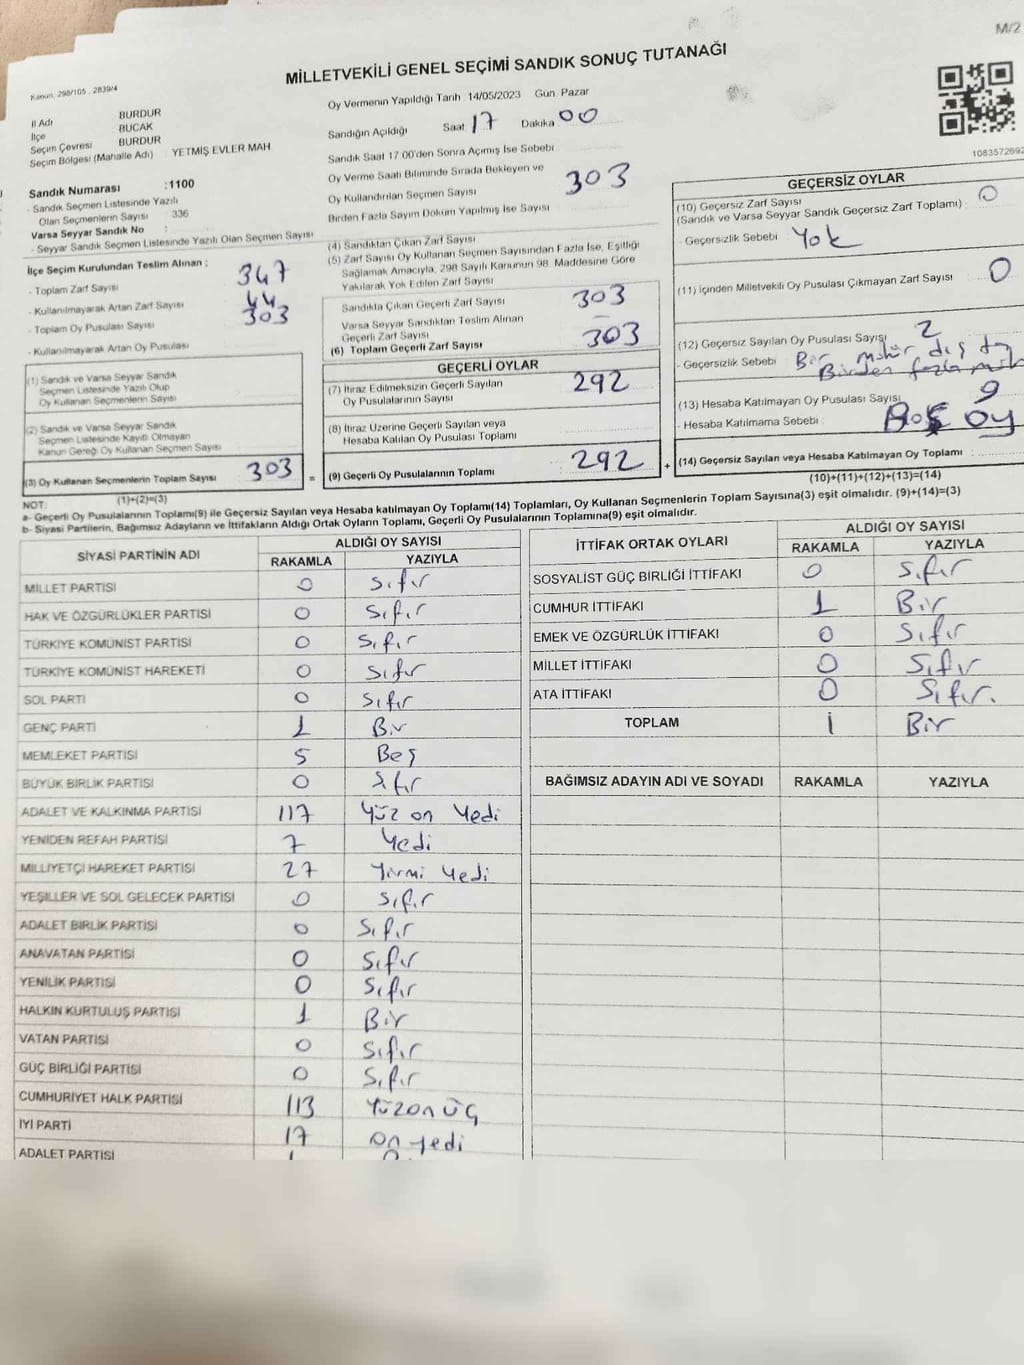 M/2
MİLLETVEKİLİ GENEL SEÇİMİ SANDIK SONUÇ TUTANAĞI
Kanun. 298/105 , 2839/4
İl Adı BURDUR
İlçe BUCAK
Seçim Çevresi BURDUR
Seçim Bölgesi (Mahalle Adı) YETMİŞ EVLER MAH
Sandık Numarası :1100
- Sandık Seçmen Listesinde Yazılı
Olan Seçmenlerin Sayısı 336
Varsa Seyyar Sandık No :
- Seyyar Sandık Seçmen Listesinde Yazılı Olan Seçmen Sayısı
İlçe Seçim Kurulundan Teslim Alınan ;
- Toplam Zarf Sayısı 347
- Kullanılmayarak Artan Zarf Sayısı 44
- Toplam Oy Pusulası Sayısı 303
- Kullanılmayarak Artan Oy Pusulası
(1) Sandık ve Varsa Seyyar Sandık
Seçmen Listesinde Yazılı Olup
Oy Kullanan Seçmenlerin Sayısı
(2) Sandık ve Varsa Seyyar Sandık
Seçmen Listesinde Kayıtlı Olmayan
Kanun Gereği Oy Kullanan Seçmen Sayısı
(3) Oy Kullanan Seçmenlerin Toplam Sayısı 303 =
(1)+(2)=(3)
Oy Vermenin Yapıldığı Tarih :14/05/2023 Gün: Pazar
Sandığın Açıldığı Saat 17 Dakika 00
Sandık Saat 17:00'den Sonra Açımış İse Sebebi
Oy Verme Saati Bitiminde Sırada Bekleyen ve
Oy Kullandırılan Seçmen Sayısı 303
Birden Fazla Sayım Döküm Yapılmış İse Sayısı
(4) Sandıktan Çıkan Zarf Sayısı
(5) Zarf Sayısı Oy Kullanan Seçmen Sayısından Fazla İse, Eşitliği
Sağlamak Amacıyla, 298 Sayılı Kanunun 98. Maddesine Göre
Yakılarak Yok Edilen Zarf Sayısı
Sandıkta Çıkan Geçerli Zarf Sayısı 303
Varsa Seyyar Sandıktan Teslim Alınan
Geçerli Zarf Sayısı –
(6) Toplam Geçerli Zarf Sayısı 303
GEÇERLİ OYLAR
(7) İtiraz Edilmeksizin Geçerli Sayılan
Oy Pusulalarının Sayısı 292
(8) İtiraz Üzerine Geçerli Sayılan veya
Hesaba Katılan Oy Pusulası Toplamı
(9) Geçerli Oy Pusulalarının Toplamı 292 +
1083572692
GEÇERSİZ OYLAR
(10) Geçersiz Zarf Sayısı
(Sandık ve Varsa Seyyar Sandık Geçersiz Zarf Toplamı) : 0
- Geçersizlik Sebebi Yok
(11) İçinden Milletvekili Oy Pusulası Çıkmayan Zarf Sayısı 0
(12) Geçersiz Sayılan Oy Pusulası Sayısı 2
- Geçersizlik Sebebi Bir mühür dış
Birden fazla
(13) Hesaba Katılmayan Oy Pusulası Sayısı 9
- Hesaba Katılmama Sebebi : Boş oy
(14) Geçersiz Sayılan veya Hesaba Katılmayan Oy Toplamı
(10)+(11)+(12)+(13)=(14)
NOT:
a- Geçerli Oy Pusulalarının Toplamı(9) ile Geçersiz Sayılan veya Hesaba katılmayan Oy Toplamı(14) Toplamları, Oy Kullanan Seçmenlerin Toplam Sayısına(3) eşit olmalıdır. (9)+(14)=(3)
b- Siyasi Partilerin, Bağımsız Adayların ve İttifakların Aldığı Ortak Oyların Toplamı, Geçerli Oy Pusulalarının Toplamına(9) eşit olmalıdır.
SİYASİ PARTİNİN ADI ALDIĞI OY SAYISI
RAKAMLA YAZIYLA
MİLLET PARTİSİ 0 Sıfır
HAK VE ÖZGÜRLÜKLER PARTİSİ 0 Sıfır
TÜRKİYE KOMÜNİST PARTİSİ 0 Sıfır
TÜRKİYE KOMÜNİST HAREKETİ 0 Sıfır
SOL PARTİ 0 Sıfır
GENÇ PARTİ 1 Bir
MEMLEKET PARTİSİ 5 Beş
BÜYÜK BİRLİK PARTİSİ 0 Sıfır
ADALET VE KALKINMA PARTİSİ 117 Yüz on Yedi
YENİDEN REFAH PARTİSİ 7 Yedi
MİLLİYETÇİ HAREKET PARTİSİ 27 Yirmi Yedi
YEŞİLLER VE SOL GELECEK PARTİSİ 0 Sıfır
ADALET BİRLİK PARTİSİ 0 Sıfır
ANAVATAN PARTİSİ 0 Sıfır
YENİLİK PARTİSİ 0 Sıfır
HALKIN KURTULUŞ PARTİSİ 1 Bir
VATAN PARTİSİ 0 Sıfır
GÜÇ BİRLİĞİ PARTİSİ 0 Sıfır
CUMHURİYET HALK PARTİSİ 113 Yüzon üç
İYİ PARTİ 17 on yedi
ADALET PARTİSİ
İTTİFAK ORTAK OYLARI ALDIĞI OY SAYISI
RAKAMLA YAZIYLA
SOSYALİST GÜÇ BİRLİĞİ İTTİFAKI 0 Sıfır
CUMHUR İTTİFAKI 1 Bir
EMEK VE ÖZGÜRLÜK İTTİFAKI 0 Sıfır
MİLLET İTTİFAKI 0 Sıfır
ATA İTTİFAKI 0 Sıfır.
TOPLAM 1 Bir
BAĞIMSIZ ADAYIN ADI VE SOYADI RAKAMLA YAZIYLA